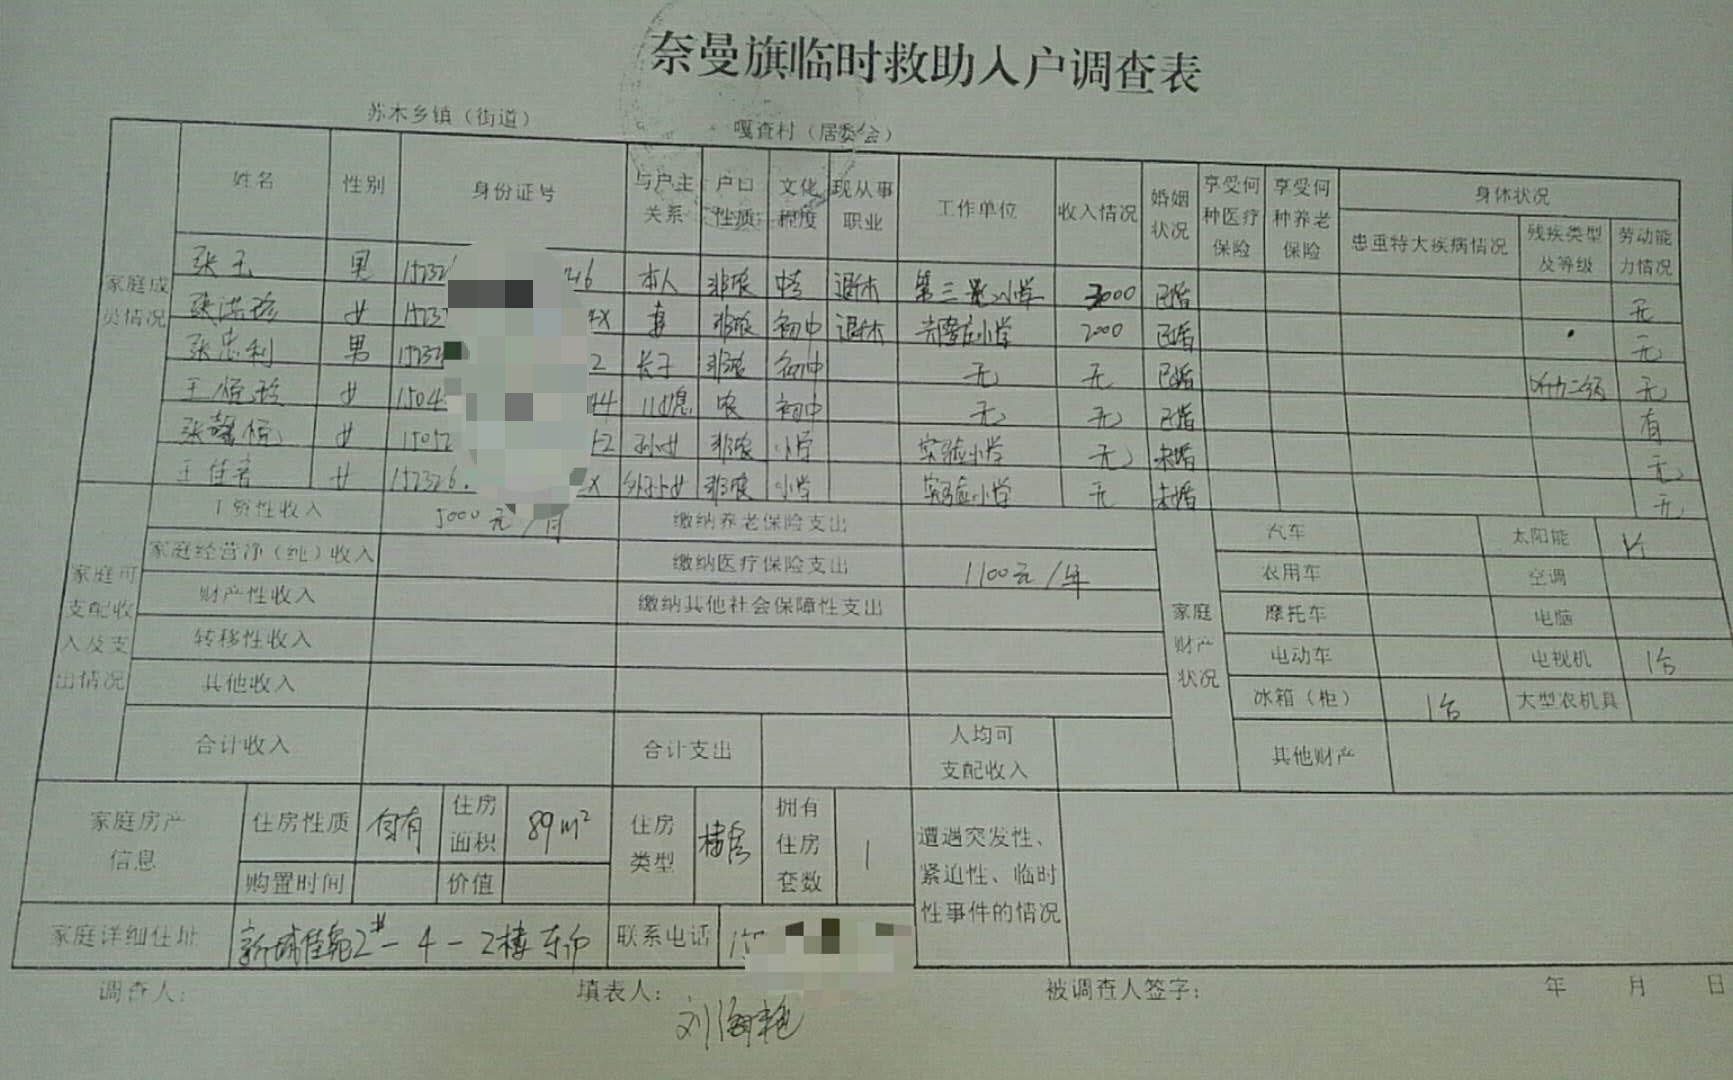 奈曼旗临时救助入户调查表
苏木乡镇（街道） 嘎查村（居委会）
姓名 性别 身份证号 与户主关系 户口性质 文化程度 现从事职业 工作单位 收入情况 婚姻状况 享受何种医疗保险 享受何种养老保险 身体状况
患重特大疾病情况 残疾类型及等级 劳动能力情况
家庭成员情况
张 男 152326 246 本人 非农 中专 退休 第三 小学 3000 已婚 无
张洪珍 女 15232 4X 妻 非农 初中 退休 小学 2000 已婚 无
张忠利 男 15232 2 长子 非农 初中 无 无 已婚 听力二级 无
王 女 1504 44 儿媳 农 初中 无 无 已婚 有
张馨 女 15052 52 孙女 非农 小学 实验小学 无 未婚 无
王佳 女 152326 X 外孙女 非农 小学 实验小学 无 未婚 无
家庭可支配收入及支出情况
工资性收入 5000元/月 缴纳养老保险支出
家庭经营净（纯）收入 缴纳医疗保险支出 1100元/年
财产性收入 缴纳其他社会保障性支出
转移性收入
其他收入
合计收入 合计支出 人均可支配收入
家庭财产状况
汽车 太阳能 1台
农用车 空调
摩托车 电脑
电动车 电视机 1台
冰箱（柜） 1台 大型农机具
其他财产
家庭房产信息 住房性质 自有 住房面积 89m² 住房类型 楼房 拥有住房套数 1
购置时间 价值
遭遇突发性、紧迫性、临时性事件的情况
家庭详细住址 新城佳苑2#-4-2楼东 联系电话 15
调查人： 填表人： 刘海艳 被调查人签字： 年 月 日